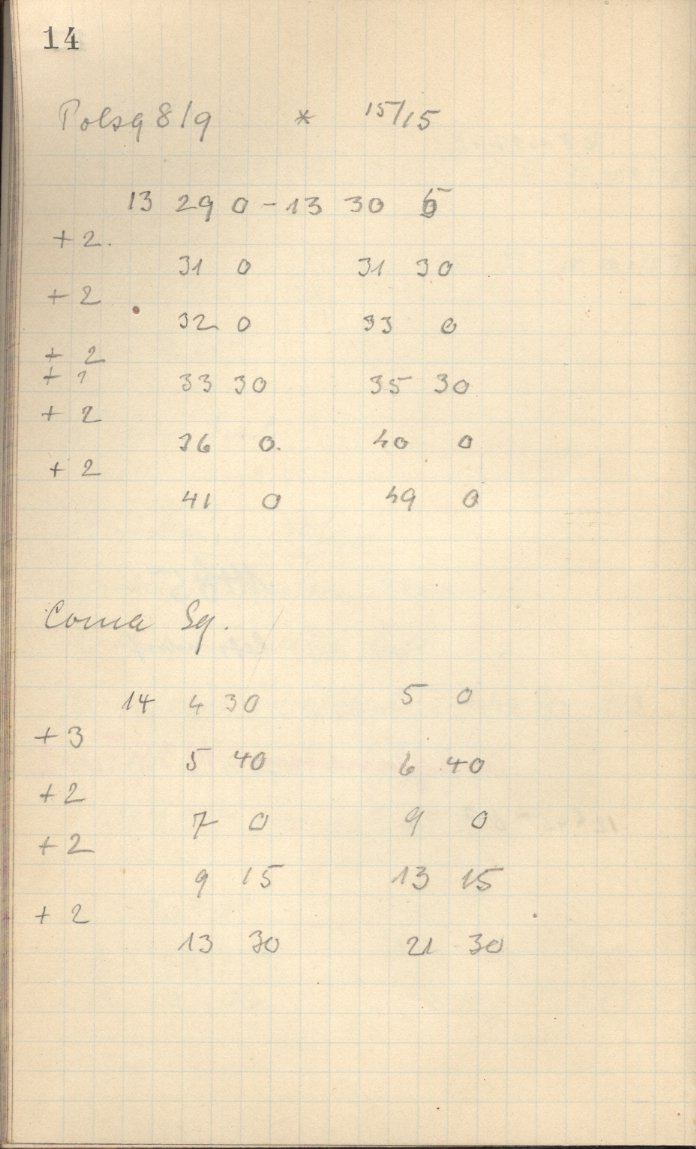 14
Polsq 8/9 * 15/15
13 29 0 - 13 30 0
+2.
31 0 31 30
+2
32 0 33 0
+ 2
+ 1
33 30 35 30
+ 2
36 0. 40 0
+ 2
41 0 49 0
Coma Sq.
14 4 30 5 0
+3
5 40 6 40
+2
7 0 9 0
+2
9 15 13 15
+ 2
13 30 21 30